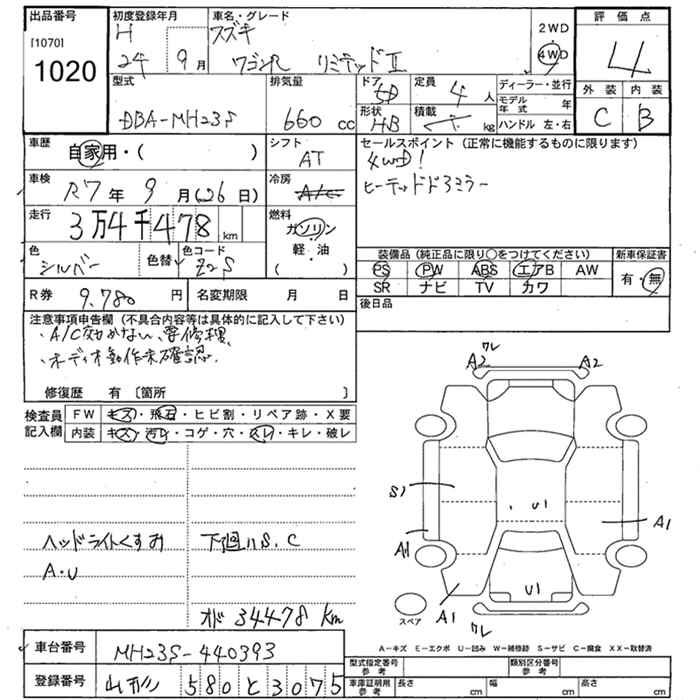 出品番号
[1070]
1020
初度登録年月
H
24 9月
車名・グレード
スズキ
ワゴンR リミテッドⅡ
2WD
4WD
評価点
4
外装 内装
C B
型式
DBA-MH23S
排気量
660 cc
ドア
5D
定員
4 人
形状
HB
積載
kg
ディーラー・並行
モデル年式 年
ハンドル 左・右
車歴
自家用・( )
シフト
AT
セールスポイント (正常に機能するものに限ります)
4WD!
ヒーテッドドアミラー
車検
R7年 9月(26日)
冷房
A/C
走行
3万4千478 km
燃料
ガソリン
・
軽・油
( )
色
シルバー
色替
色コード
Z2S
装備品 (純正品に限り○をつけてください)
PS PW ABS エアB AW
SR ナビ TV カワ
新車保証書
有・無
R券
9,780 円
名変期限 月 日
後日品
注意事項申告欄 (不具合内容等は具体的に記入して下さい)
・A/C効かない、要修理、
・オーディオ動作未確認。
修復歴 有 〔箇所 〕
検査員記入欄
FW キズ・飛石・ヒビ割・リペア跡・X要
内装 キズ・汚れ・コゲ・穴・スレ・キレ・破レ
ワレ
A2 A2
S1
U1
A1
A1
U1
A1
ワレ
スペア
ヘッドライトくすみ 下廻りS.C
A・U
オド 34478 km
A−キズ E−エクボ U−凹み W−補修跡 S−サビ C−腐食 XX−取替済
車台番号
MH23S-440393
登録番号
山形 580 と 3075
型式指定番号 参考
類別区分番号 参考
車庫証明用 参考
長さ cm
幅 cm
高さ cm